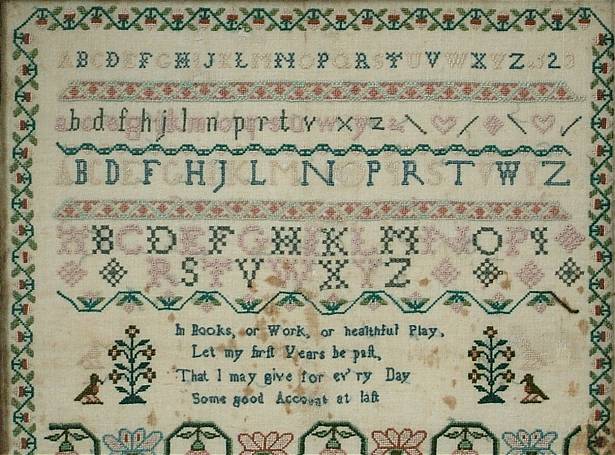 A B C D E F G H I J K L M N O P Q R S T U V W X Y Z 1 2 3
a b c d e f g h i j k l m n o p q r s t u v w x y z &
A B C D E F G H I J K L M N O P Q R S T V W Y Z
A B C D E F G H I K L M N O P Q
R S T V W X Y Z
In Books, or Work, or healthful Play,
Let my firſt Years be paſt,
That I may give for ev'ry Day
Some good Account at laſt